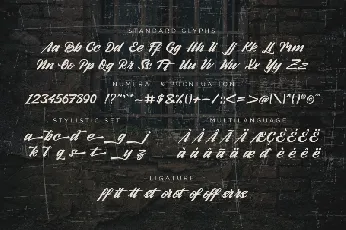 STANDARD GLYPHS
Aa Bb Cc Dd Ee Ff Gg Hh Ii Jj Kk Ll Mm
Nn Oo Pp Qq Rr Ss Tt Uu Vv Ww Xx Yy Zz
NUMERAL & PUNCTUATION
1234567890
STYLISTIC SET
a b c d e g j
k l q s t y z
MULTILANGUAGE
À Á Â Ã Ä Å Æ Ç È É Ê Ë
à á â ã ä å æ è é ê ë
LIGATURE
ff it tt st or ot of off